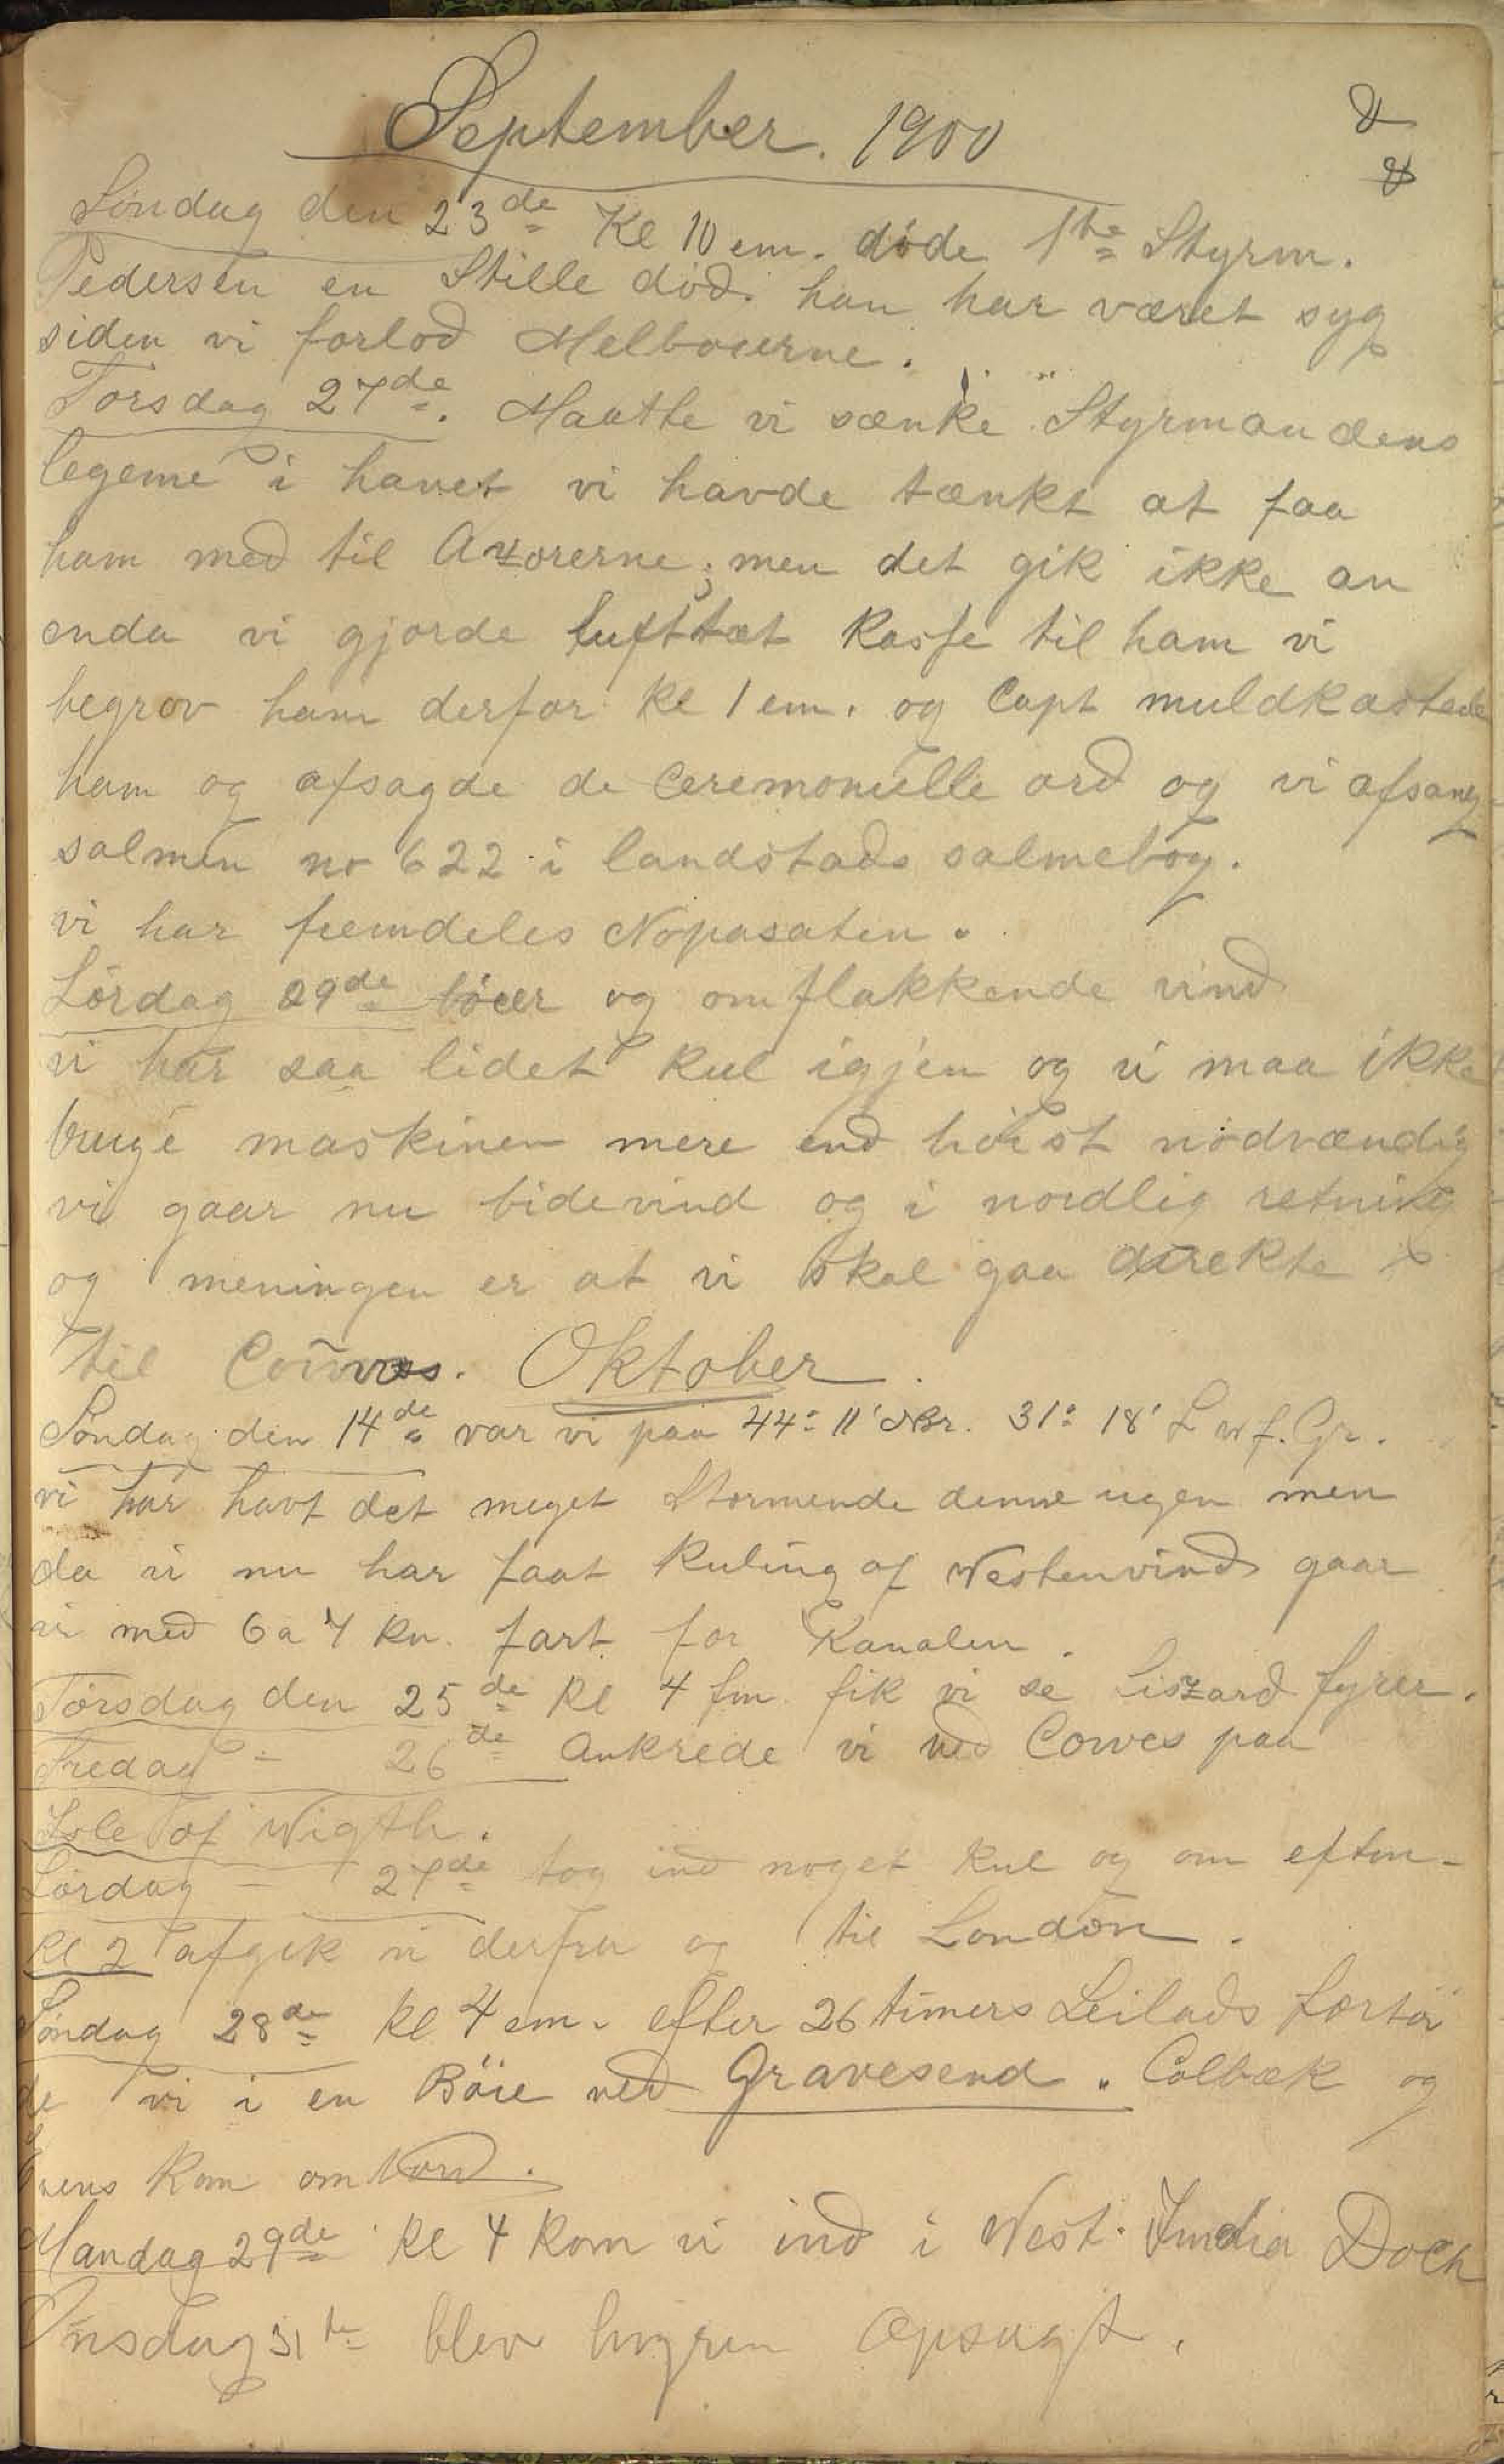 September. 1900
Søndag den 23de Kl 10 em. døde 1ste Styrm.
Pedersen en Stille død. han har været syg
siden vi forlod Melbourne.
Torsdag 27de. Maatte vi sænke Styrmandens
legeme i havet vi havde tænkt at faa
ham med til Azorerne; men det gik ikke an
enda vi gjorde lufttæt Kasse til ham vi
begrov ham derfor Kl 1 em. og Capt muldkastede
ham og afsagde de Ceremonielle ord og vi afsang
salmen no 622 i landstads salmebog.
vi har fremdeles Nopasaten.
Lørdag 29de bøier og omflakkende vind
vi har saa lidet Kul igjen og vi maa ikke
bruge maskinen mere end høist nødvændig
vi gaar nu bidevind og i nordlig retning
og meningen er at vi skal gaa direkte
til Cowes. Oktober.
Søndag den 14de var vi paa 44° 11' NBr. 31° 18' L w f. Gr.
vi har havt det meget Stormende denne ugen men
da vi nu har faat Kuling af Westenvind gaar
vi med 6 a 7 Kn. fart for Kanalen.
Torsdag den 25de Kl 4 fm fik vi se Liszard fyrer.
Fredag - 26de Ankrede vi ved Cowes paa
Isle of Wigth.
Lørdag - 27de tog ind noget Kul og om eftm-
Kl 2 afgik vi derfra og til London.
Søndag 28de Kl 4 em. efter 26 timers Seilads fortøi
de vi i en Bøie ved Gravesend. Colbæk og
Kom ombord.
Mandag 29de Kl 4 Kom vi ind i West. India Dock
Onsdag 31te blev hyren Opsagt.